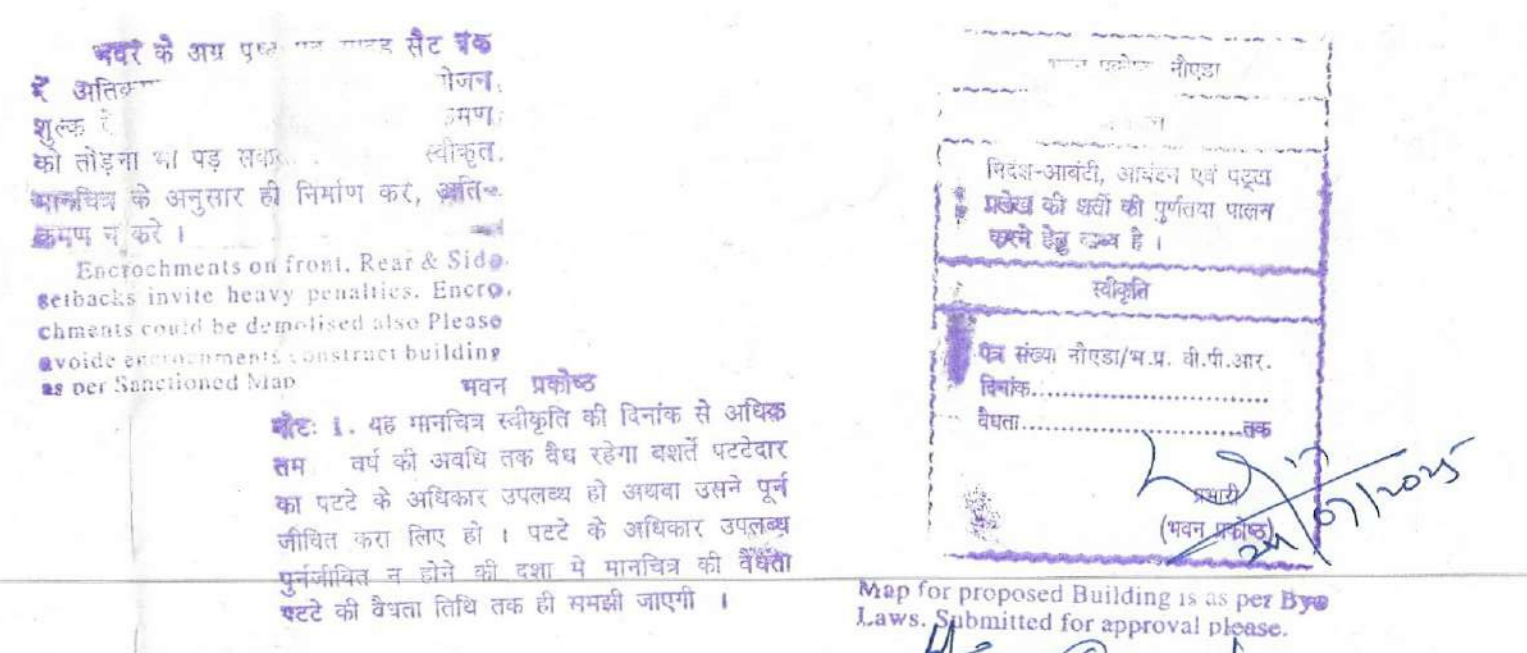 के अग्र सैट बैक
शुल्क
को तोड़ना भी पड़ स्वीकृत
मानचित्र के अनुसार ही निर्माण करे, अति-
क्रमण न करे ।
Encrochments on front, Rear & Side
setbacks invite heavy penalties. Encro-
chments could be demolised also Please
avoide encrochments construct building
as per Sanctioned Map
भवन प्रकोष्ठ
नोट: 1. यह मानचित्र स्वीकृति की दिनांक से अधिक
तम वर्ष की अवधि तक वैध रहेगा बशर्ते पटटेदार
का पटटे के अधिकार उपलब्ध हो अथवा उसने पूर्न
जीवित करा लिए हो । पटटे के अधिकार उपलब्ध
पुर्नजीवित न होने की दशा मे मानचित्र की वैधता
पटटे की वैधता तिथि तक ही समझी जाएगी ।
प्रकोष्ठ नौएडा
निर्देश-आबंटी, आबंटन एवं पट्टा
प्रलेख की शर्तो की पुर्णतया पालन
करने हेतु बाध्य है ।
स्वीकृति
पत्र संख्या नौएडा/भ.प्र. वी.पी.आर.
दिनांक..............................
वैधता..............................तक
प्रभारी
(भवन प्रकोष्ठ)
/07/2025
Map for proposed Building is as per Bye
Laws. Submitted for approval please.